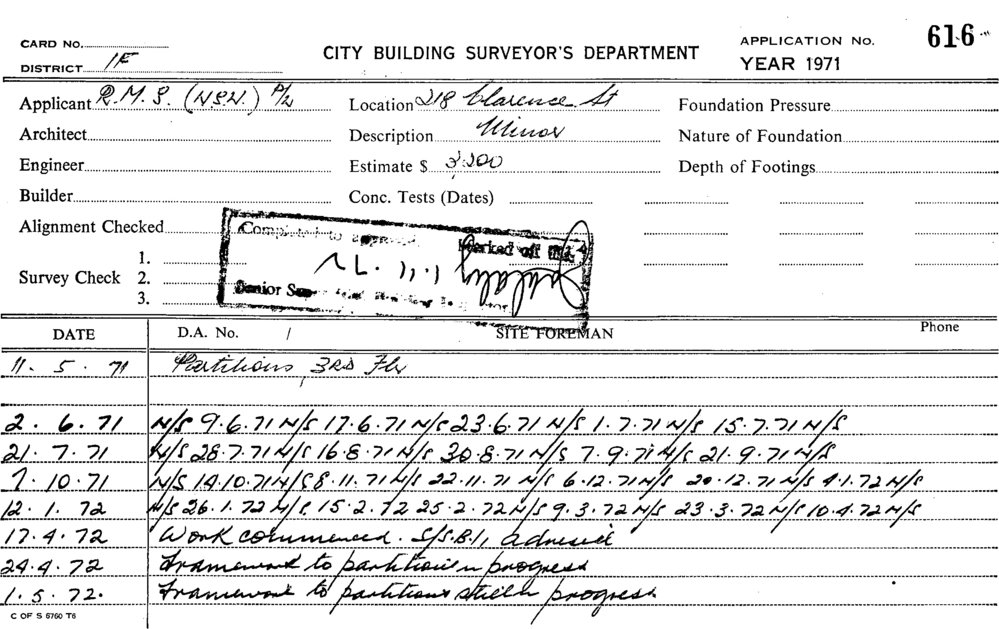 CARD No.
CITY BUILDING SURVEYOR'S DEPARTMENT
APPLICATION No. 616
DISTRICT 1F
YEAR 1971
Applicant R.M.S. (N.S.W.) P/L Location 218 Clarence St Foundation Pressure
Architect Description Minor Nature of Foundation
Engineer Estimate $ 3,200 Depth of Footings
Builder Conc. Tests (Dates)
Alignment Checked
Completed to Marked off
1.
Survey Check 2.
3.
Senior Building
DATE D.A. No. / SITE FOREMAN Phone
11. 5. 71 Partitions, 3RD Flr
2. 6. 71 N/S 9.6.71 N/S 17.6.71 N/S 23.6.71 N/S 1.7.71 N/S 15.7.71 N/S
21. 7. 71 N/S 28.7.71 N/S 16.8.71 N/S 30.8.71 N/S 7.9.71 N/S 21.9.71 N/S
7. 10. 71 N/S 14.10.71 N/S 8.11.71 N/S 22.11.71 N/S 6.12.71 N/S 20.12.71 N/S 4.1.72 N/S
12. 1. 72 N/S 26.1.72 N/S 15.2.72 25.2.72 N/S 9.3.72 N/S 23.3.72 N/S 10.4.72 N/S
17. 4. 72 Work commenced. S/S.B.I, advised
24. 4. 72 Framework to partitions in progress
1. 5. 72. Framework to partitions still in progress
C OF S 6760 T6